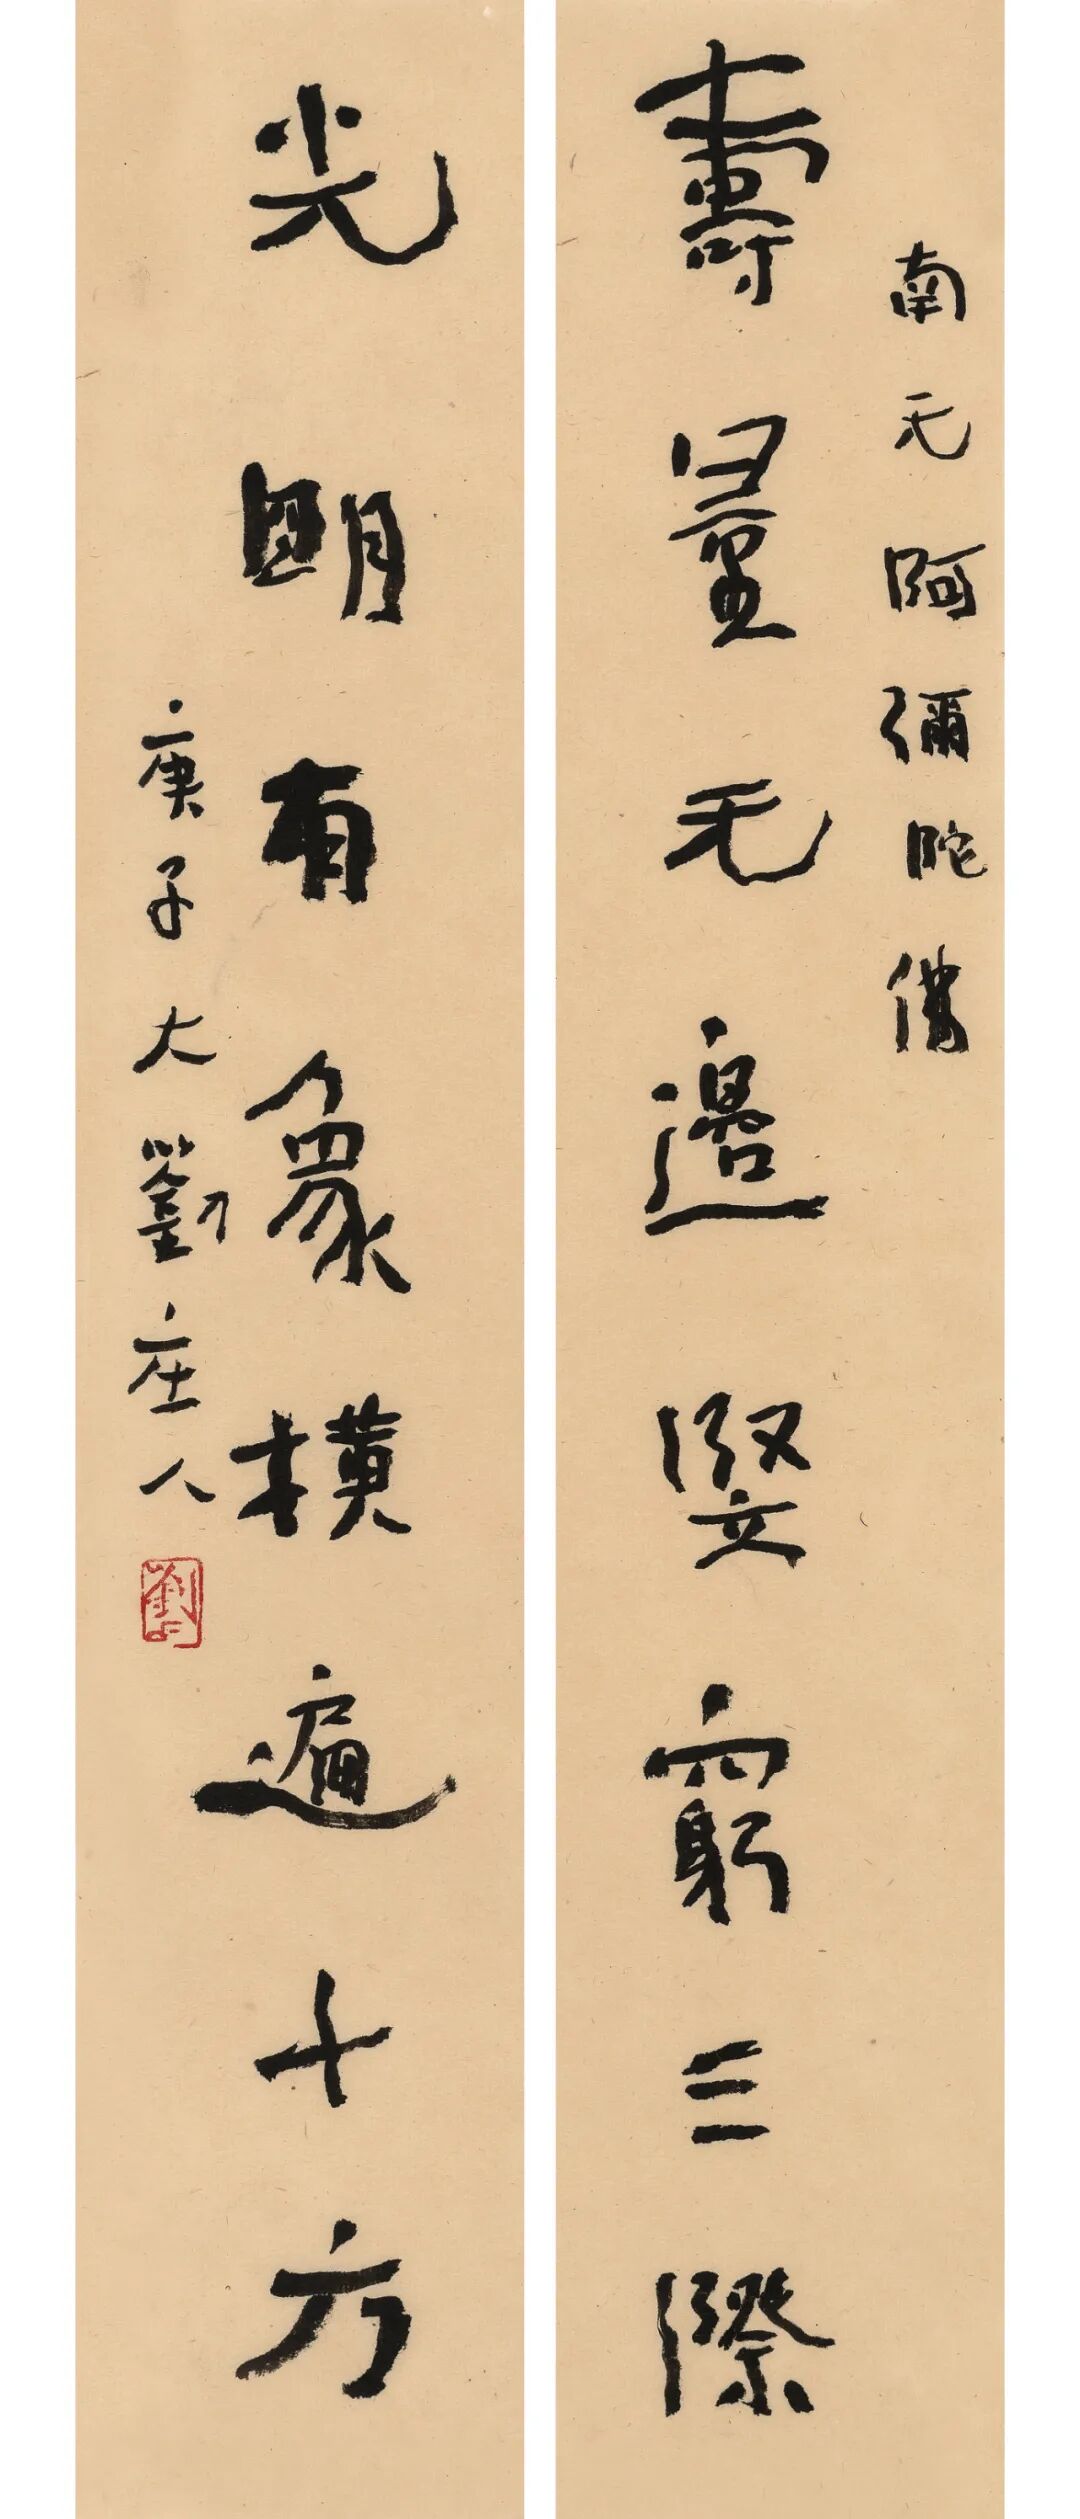 南无阿彌陀佛
壽量无邊豎窮三際
光明有象橫遍十方
庚子大劉庄人